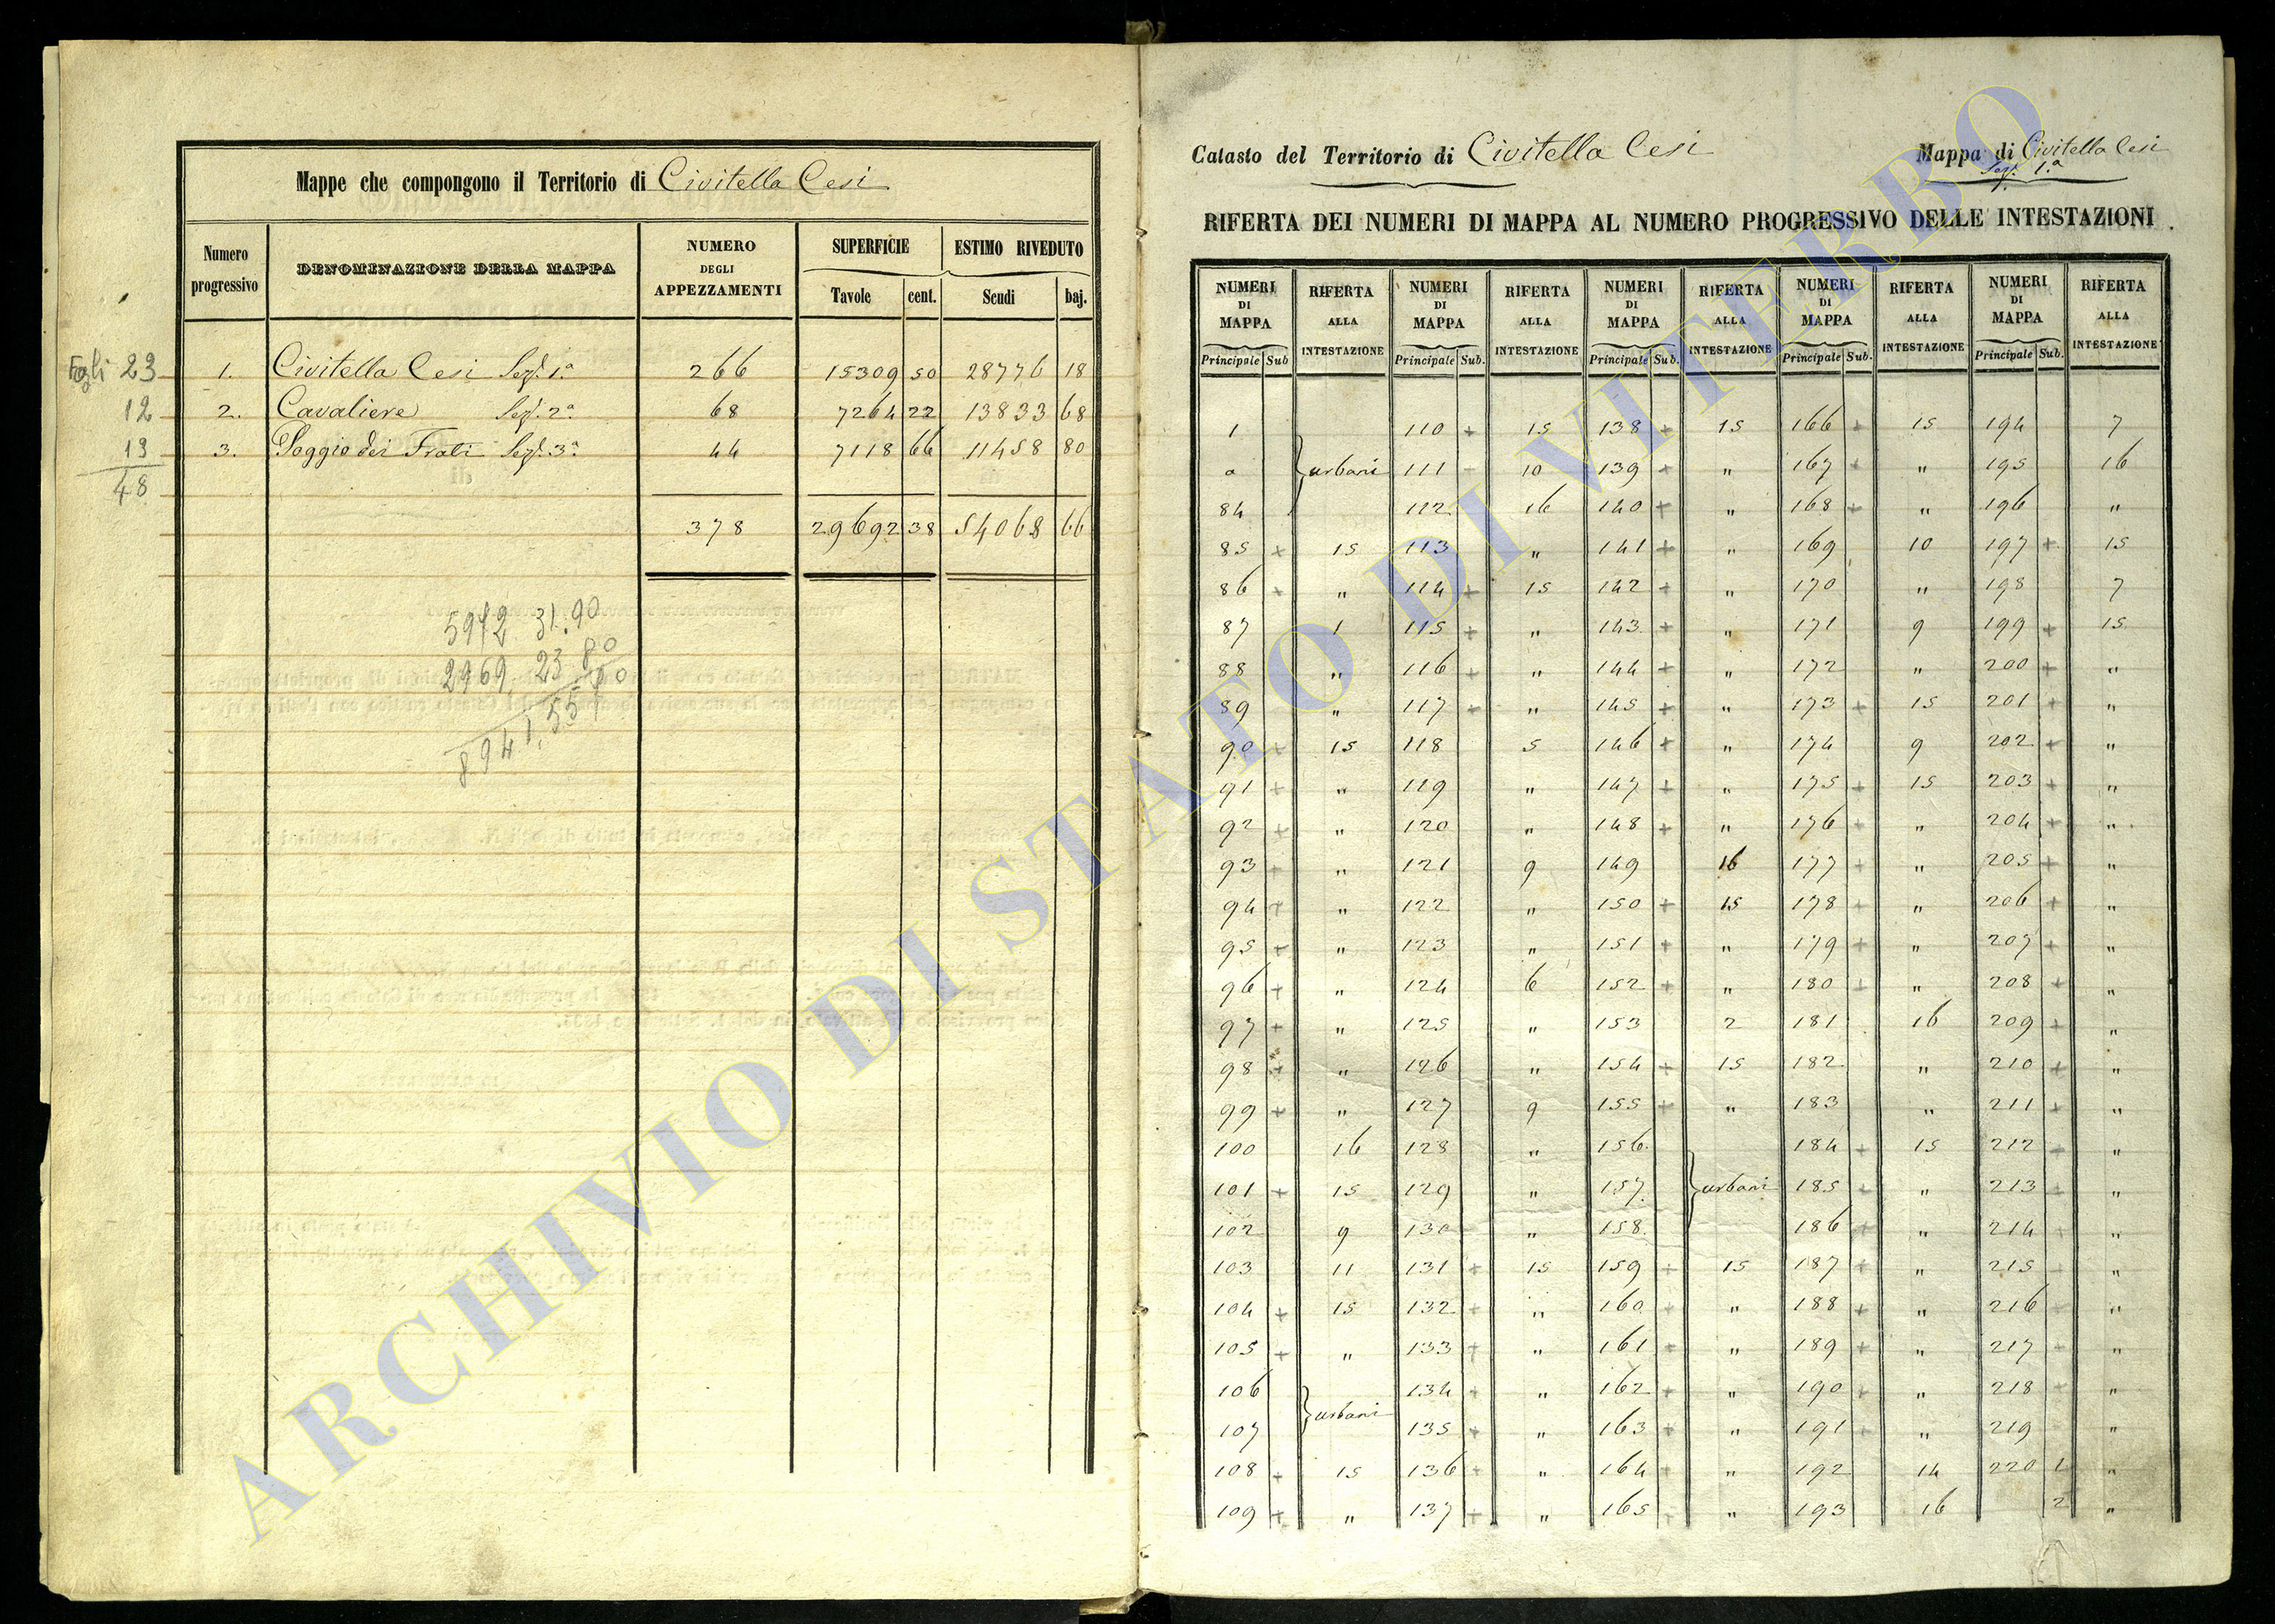 Mappe che compongono il Territorio di Civitella Cesi
Numero progressivo | DENOMINAZIONE DELLA MAPPA | NUMERO DEGLI APPEZZAMENTI | SUPERFICIE Tavole cent. | ESTIMO RIVEDUTO Scudi baj.
Fogli 23 1. Civitella Cesi Sez. 1.a 266 15309 50 28776 18
12 2. Cavaliere Sez. 2a 68 7264 22 13833 68
13 3. Poggio dei Frati Sez. 3.a 44 7118 66 11458 80
48
378 29692 38 54068 66
5972 31.90
2969. 23 80
8941,55
Catasto del Territorio di Civitella Cesi
Mappa di Civitella Cesi
Sez. 1.a
RIFERTA DEI NUMERI DI MAPPA AL NUMERO PROGRESSIVO DELLE INTESTAZIONI
NUMERI DI MAPPA | RIFERTA ALLA INTESTAZIONE | NUMERI DI MAPPA | RIFERTA ALLA INTESTAZIONE | NUMERI DI MAPPA | RIFERTA ALLA INTESTAZIONE | NUMERI DI MAPPA | RIFERTA ALLA INTESTAZIONE | NUMERI DI MAPPA | RIFERTA ALLA INTESTAZIONE
Principale Sub Principale Sub. Principale Sub. Principale Sub. Principale Sub.
1 110 + 15 138 + 15 166 + 15 194 7
a urbani 111 10 139 + " 167 + " 195 16
84 112 16 140 + " 168 + " 196 "
85 + 15 113 " 141 + " 169 10 197 + 15
86 + " 114 + 15 142 + " 170 " 198 7
87 1 115 + " 143 + " 171 9 199 + 15
88 " 116 + " 144 + " 172 " 200 + "
89 " 117 + " 145 + " 173 + 15 201 + "
90 + 15 118 5 146 + " 174 9 202 + "
91 + " 119 " 147 + " 175 + 15 203 + "
92 + " 120 " 148 + " 176 + " 204 + "
93 + " 121 9 149 16 177 + " 205 + "
94 + " 122 " 150 + 15 178 + " 206 + "
95 + " 123 " 151 + " 179 + " 207 + "
96 + " 124 6 152 + " 180 + " 208 + "
97 + " 125 " 153 2 181 16 209 + "
98 + " 126 " 154 + 15 182 " 210 + "
99 + " 127 9 155 + " 183 " 211 + "
100 16 128 " 156 184 + 15 212 + "
101 + 15 129 " 157 urbani 185 + " 213 + "
102 9 130 " 158 186 + " 214 + "
103 11 131 + 15 159 + 15 187 + " 215 + "
104 + 15 132 + " 160 + " 188 + " 216 + "
105 + " 133 + " 161 + " 189 + " 217 + "
106 134 + " 162 + " 190 + " 218 + "
107 urbani 135 + " 163 + " 191 + " 219 "
108 + 15 136 + " 164 + " 192 14 220 1 "
109 + " 137 + " 165 + " 193 16 2 "
ARCHIVIO DI STATO DI VITERBO